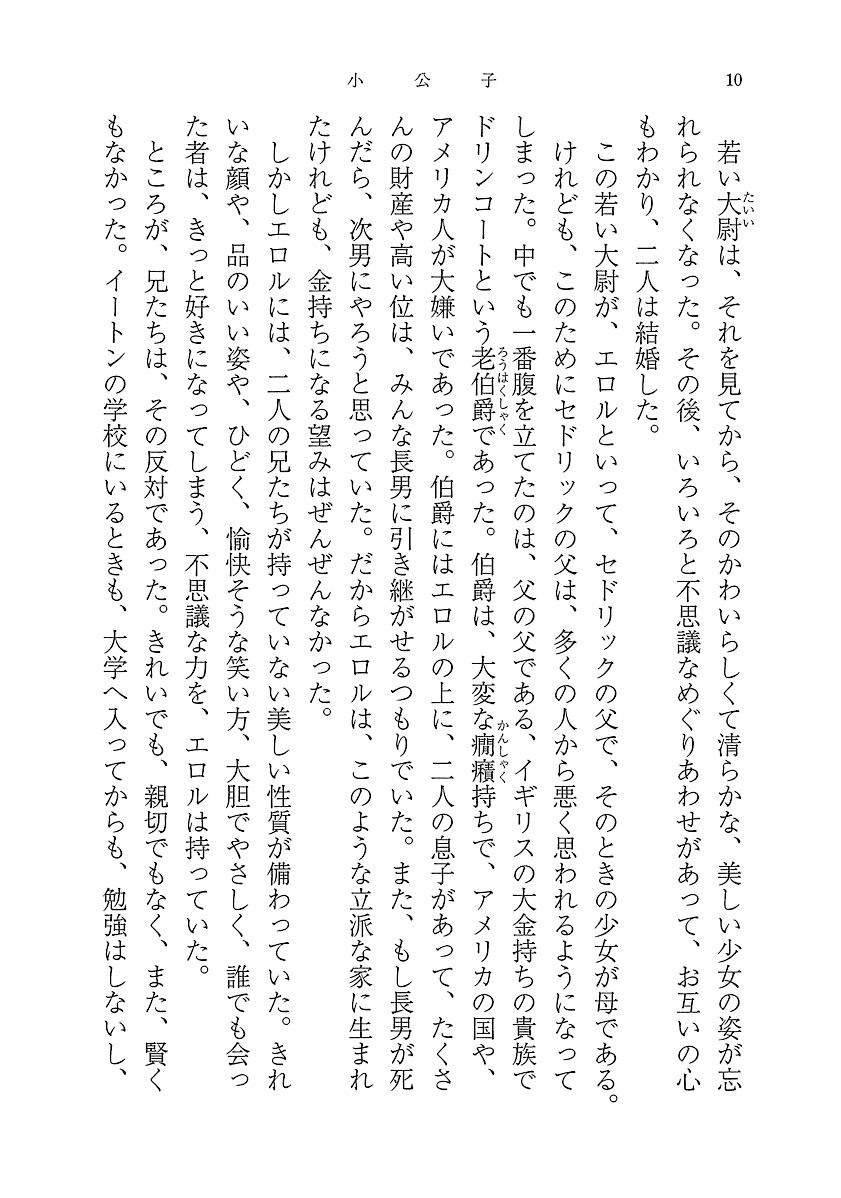 小公子
10
若い大尉は、それを見てから、そのかわいらしくて清らかな、美しい少女の姿が忘
れられなくなった。その後、いろいろと不思議なめぐりあわせがあって、お互いの心
もわかり、二人は結婚した。
この若い大尉が、エロルといって、セドリックの父で、そのときの少女が母である。
けれども、このためにセドリックの父は、多くの人から悪く思われるようになって
しまった。中でも一番腹を立てたのは、父の父である、イギリスの大金持ちの貴族で
ドリンコートという老伯爵であった。伯爵は、大変な癇癪持ちで、アメリカの国や、
アメリカ人が大嫌いであった。伯爵にはエロルの上に、二人の息子があって、たくさ
んの財産や高い位は、みんな長男に引き継がせるつもりでいた。また、もし長男が死
んだら、次男にやろうと思っていた。だからエロルは、このような立派な家に生まれ
たけれども、金持ちになる望みはぜんぜんなかった。
しかしエロルには、二人の兄たちが持っていない美しい性質が備わっていた。きれ
いな顔や、品のいい姿や、ひどく、愉快そうな笑い方、大胆でやさしく、誰でも会っ
た者は、きっと好きになってしまう、不思議な力を、エロルは持っていた。
ところが、兄たちは、その反対であった。きれいでも、親切でもなく、また、賢く
もなかった。イートンの学校にいるときも、大学へ入ってからも、勉強はしないし、
たいい
ろうはくしゃく
かんしゃく